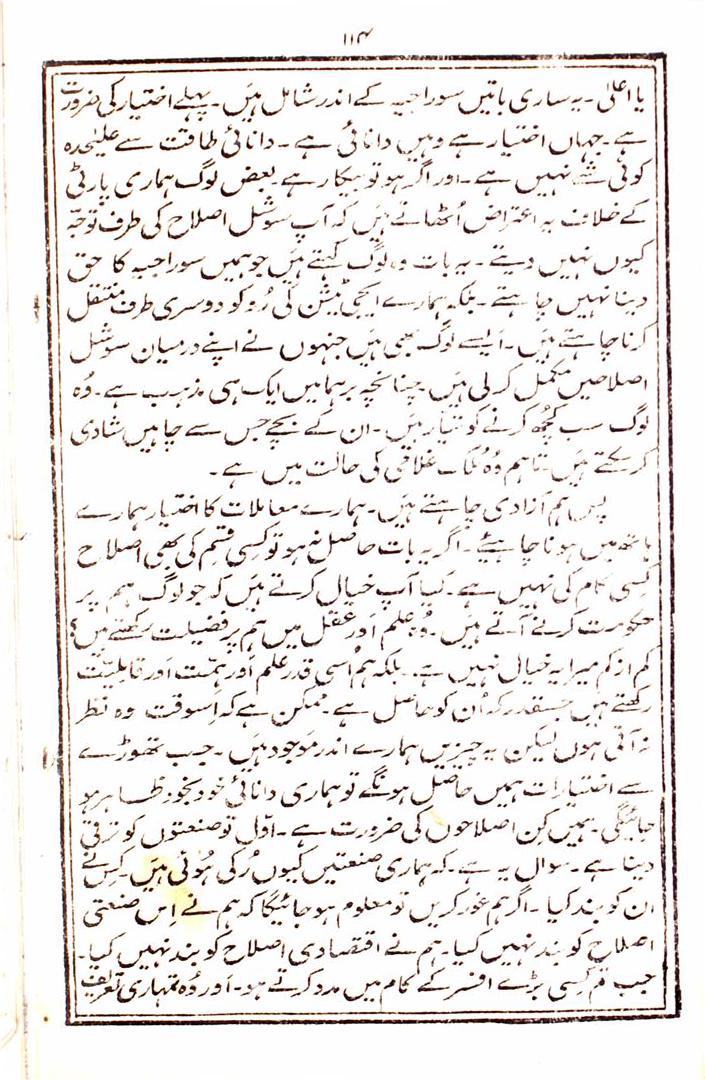 ۱۱۴
یا اعلیٰ۔ یہ ساری باتیں سوراجیہ کے اندر شامل ہیں۔ پہلے اختیار کی ضرورت
ہے۔ جہاں اختیار ہے وہیں دانائی ہے۔ دانائی طاقت سے علیٰحدہ
کوئی شے نہیں ہے۔ اور اگر ہو تو بیکار ہے۔ بعض لوگ ہماری پارٹی
کے خلاف یہ اعتراض اُٹھاتے ہیں کہ آپ سوشل اصلاح کی طرف توجہ
کیوں نہیں دیتے۔ یہ بات وہ لوگ کہتے ہیں جو ہمیں سوراجیہ کا حق
دینا نہیں چاہتے۔ بلکہ ہمارے ایجی ٹیشن کی رَو کو دوسری طرف منتقل
کرنا چاہتے ہیں۔ ایسے لوگ بھی ہیں جنہوں نے اپنے درمیان سوشل
اصلاحیں مکمل کر لی ہیں۔ چنانچہ برہما میں ایک ہی مذہب ہے۔ وُہ
لوگ سب کچھ کرنے کو تیار ہیں۔ ان کے بچے جس سے چاہیں شادی
کر سکتے ہیں۔ تاہم وُہ مُلک غلامی کی حالت میں ہے۔
پس ہم آزادی چاہتے ہیں۔ ہمارے معاملات کا اختیار ہمارے
ہاتھ میں ہونا چاہیئے۔ اگر یہ بات حاصل نہ ہو تو کسی قسم کی بھی اصلاح
کسی کام کی نہیں ہے۔ کیا آپ خیال کرتے ہیں کہ جو لوگ ہم پر
حکومت کرنے آتے ہیں۔ وُہ علم اور عقل میں ہم پر فضیلت رکھتے ہیں؟
کم از کم میرا یہ خیال نہیں ہے۔ بلکہ ہم اُسی قدر علم اور ہمت اور قابلیّت
رکھتے ہیں جسقدر کہ اُن کو حاصل ہے۔ ممکن ہے کہ اِسوقت وہ نظر
نہ آتی ہوں لیکن یہ چیزیں ہمارے اندر موجود ہیں۔ جب تھوڑے
سے اختیارات ہمیں حاصل ہونگے تو ہماری دانائی خود بخود ظاہر ہو
جائیگی۔ ہمیں کن اصلاحوں کی ضرورت ہے۔ اوّل تو صنعتوں کو ترقی
دینا ہے۔ سوال یہ ہے۔ کہ ہماری صنعتیں کیوں رُکی ہوئی ہیں۔ کس نے
ان کو بند کیا۔ اگر ہم غور کریں تو معلوم ہو جائیگا کہ ہم نے اِس صنعتی
اصلاح کو بند نہیں کیا۔ ہم نے اقتصادی اصلاح کو بند نہیں کیا۔
جب تم کسی بڑے افسر کے کام میں مدد کرتے ہو۔ اور وُہ تمہاری تعریف